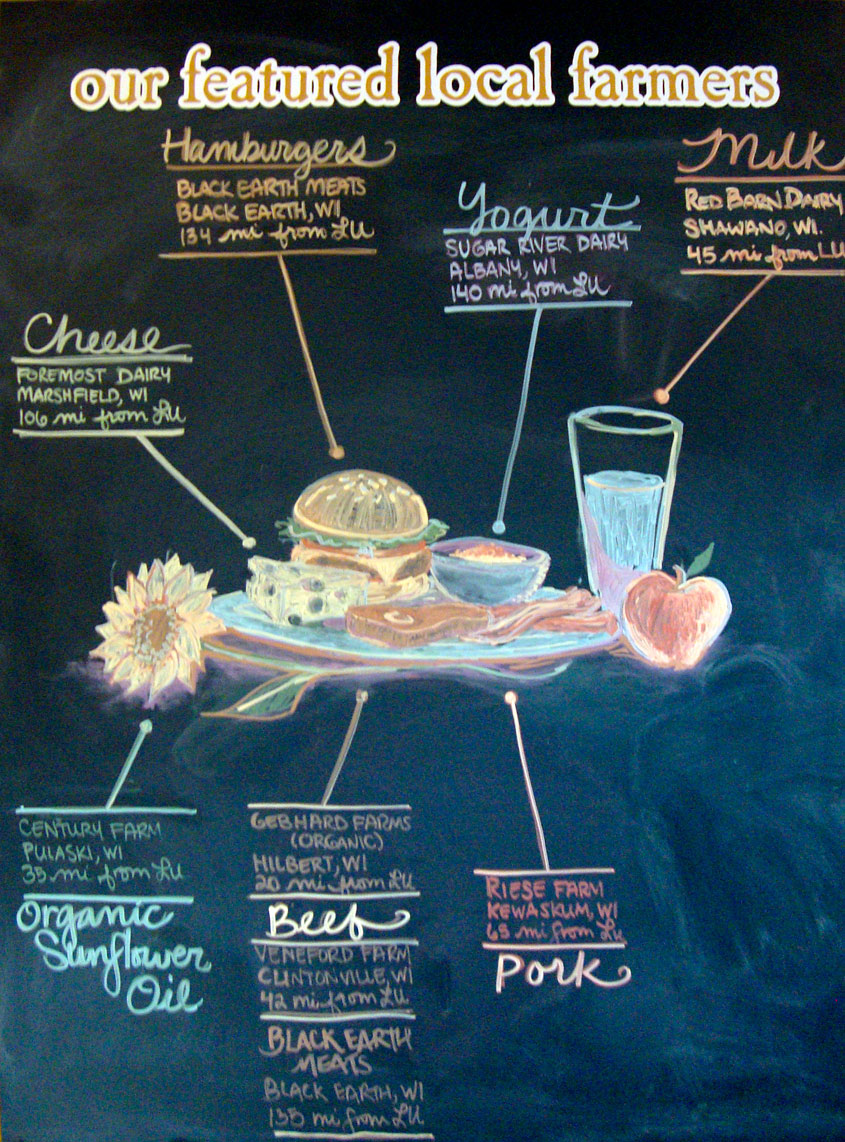 our featured local farmers
Hamburgers
BLACK EARTH MEATS
BLACK EARTH, WI
134 mi from LU
Milk
RED BARN DAIRY
SHAWANO, WI.
45 mi from LU
Yogurt
SUGAR RIVER DAIRY
ALBANY, WI
140 mi from LU
Cheese
FOREMOST DAIRY
MARSHFIELD, WI
106 mi from LU
CENTURY FARM
PULASKI, WI
35 mi from LU
Organic
Sunflower
Oil
GEBHARD FARMS
(ORGANIC)
HILBERT, WI
20 mi from LU
Beef
VENEFORD FARM
CLINTONVILLE, WI
42 mi from LU
BLACK EARTH
MEATS
BLACK EARTH, WI
135 mi from LU
RIESE FARM
KEWASKUM, WI
65 mi from LU
Pork